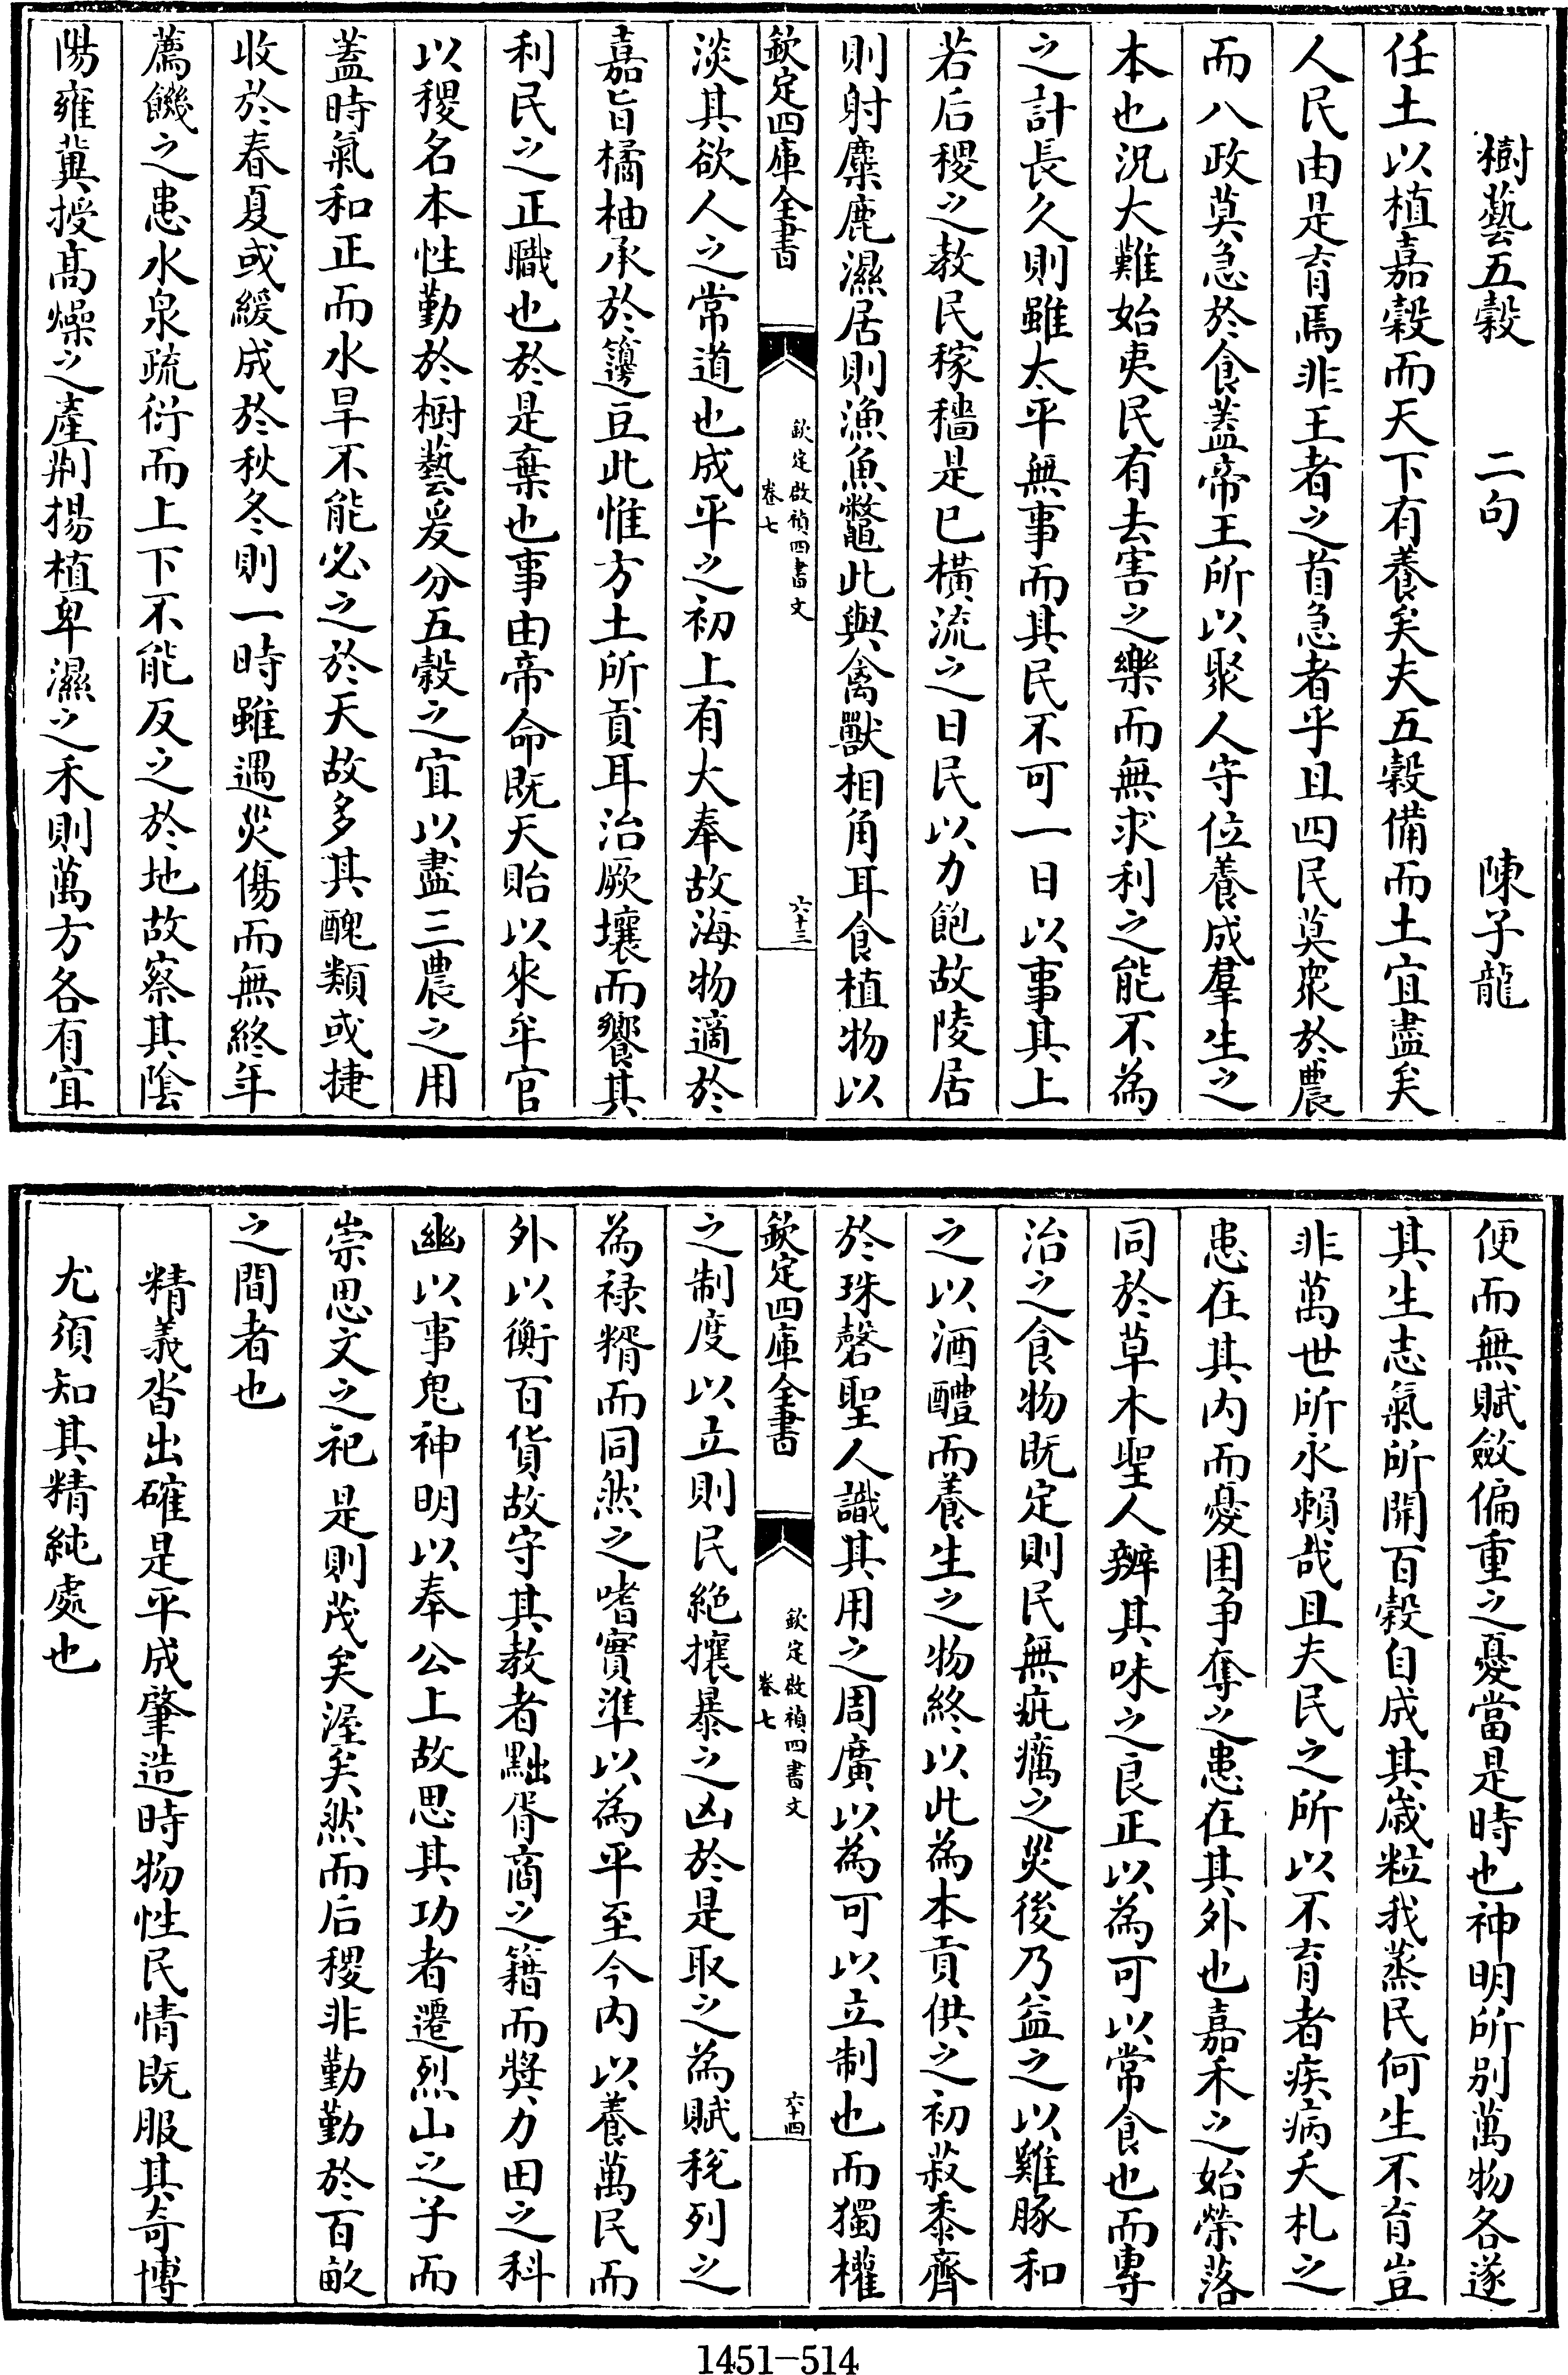 樹藝五穀　二句　陳子龍
任土以植嘉穀而天下有養矣夫五穀備而土宜盡矣
人民由是育焉非王者之首急者乎且四民莫衆於農
而八政莫急於食蓋帝王所以聚人守位養成羣生之
本也況大難始夷民有去害之樂而無求利之能不為
之計長久則雖太平無事而其民不可一日以事其上
若后稷之教民稼穡是已橫流之日民以力飽故陵居
則射麋鹿濕居則漁魚鼈此與禽獸相角耳食植物以
欽定四庫全書
欽定啟禎四書文
卷七
六十三
淡其欲人之常道也成平之初上有大奉故海物適於
嘉旨橘柚承於籩豆此惟方土所貢耳治厥壤而饗其
利民之正職也於是棄也事由帝命既天貽以來牟官
以稷名本性勤於樹藝爰分五穀之宜以盡三農之用
蓋時氣和正而水旱不能必之於天故多其醜類或捷
收於春夏或緩成於秋冬則一時雖遇災傷而無終年
薦饑之患水泉疏衍而上下不能反之於地故察其陰
陽雍冀授髙燥之產荆揚植卑濕之禾則萬方各有宜
便而無賦斂偏重之憂當是時也神明所别萬物各遂
其生志氣所開百穀自成其歲粒我蒸民何生不育豈
非萬世所永賴哉且夫民之所以不育者疾病夭札之
患在其内而憂困争奪之患在其外也嘉禾之始榮落
同於草木聖人辨其味之良正以為可以常食也而專
治之食物既定則民無疵癘之災後乃益之以雞豚和
之以酒醴而養生之物終以此為本貢供之初菽黍齊
於珠磬聖人識其用之周廣以為可以立制也而獨權
欽定四庫全書
欽定啟禎四書文
卷七
六十四
之制度以立則民絶攘暴之凶於是取之為賦稅列之
為禄糈而同然之嗜實準以為平至今内以養萬民而
外以衡百貨故守其教者黜胥商之籍而獎力田之科
幽以事鬼神明以奉公上故思其功者遷烈山之子而
崇思文之祀是則茂矣渥矣然而后稷非勤勤於百畝
之間者也
精義沓出確是平成肇造時物性民情既服其奇博
尤須知其精純處也
1451-514